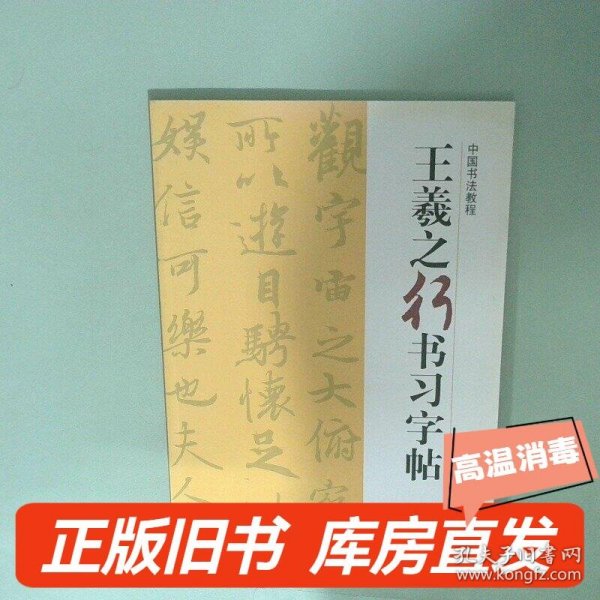 中国书法教程
王羲之行书习字帖
觀宇宙之大俯察
所以遊目騁懷足
娱信可樂也夫人
高温消毒
正版旧书 库房直发
孔夫子旧书网
www.kongfz.com